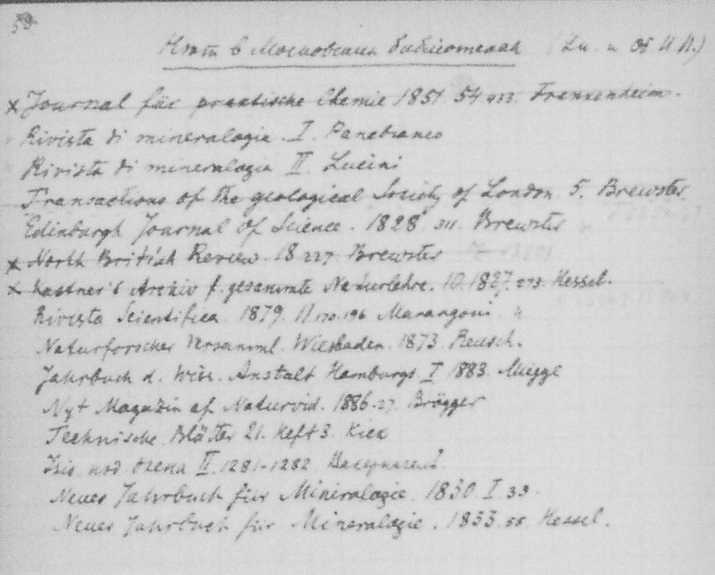 59
Нет в Московских библиотеках
× Journal für praktische Chemie 1851. 54. 433. Frenkenheim.
Rivista di mineralogia. I. Panebianco
Rivista di mineralogia II. Lucini
Transactions of the geological Society of London. 5. Brewster.
Edinburgh Journal of Science. 1828. 311. Brewster
× North British Review. 18. 227. Brewster
× Kastner's Archiv f. gesammte Naturlehre. 10. 1827. 273. Hessel.
Rivista Scientifica. 1879. 11. 170. 196 Marangoni
Naturforscher Versamml. Wiesbaden. 1873. Reusch.
Jahrbuch d. Wiss. Anstalt Hamburgs. I 1883. Mügge
Nyt Magazin af Naturvid. 1886. 27. Brögger
Technische Blätter 21. Heft 3. Kick
II. 1281-1282.
Neues Jahrbuch für Mineralogie. 1830. I 33.
Neues Jahrbuch für Mineralogie. 1833. 55. Hessel.